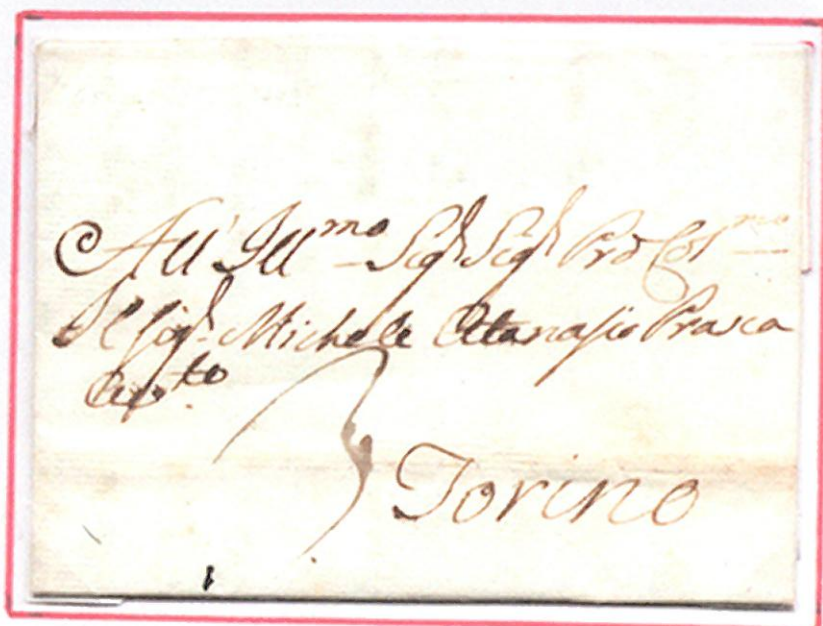 All' Ill.mo Sig.r Sig.r P.rõ Col.mo
Il Sig.r Michele Atanasio Prasca
Torino